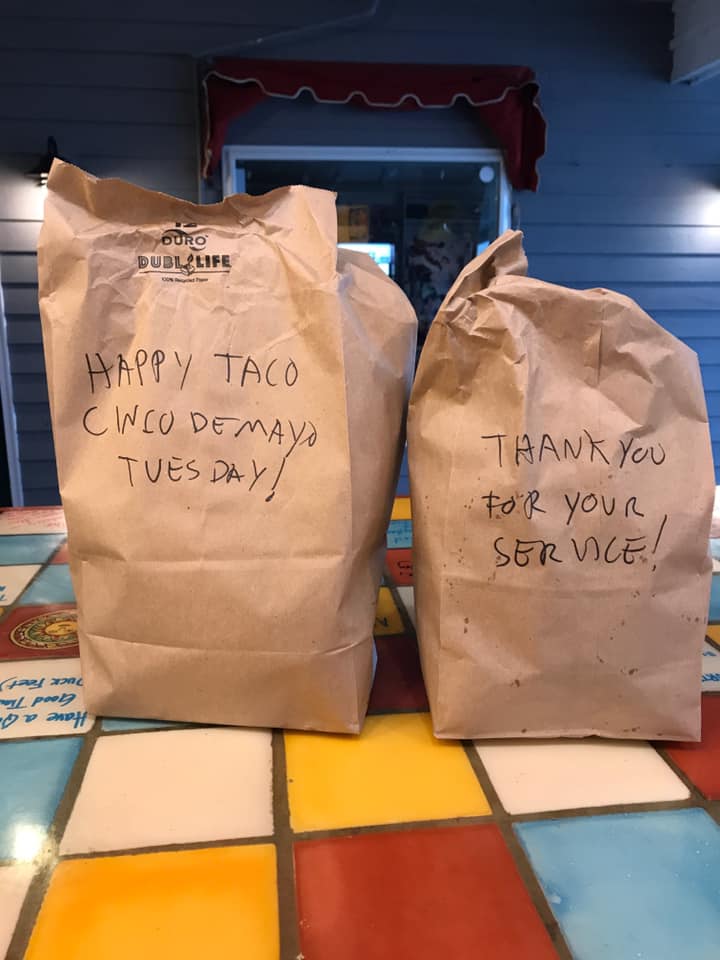 12
DURO
DUBL LIFE
100% Recycled Paper
HAPPY TACO
CINCO DE MAYO
TUESDAY!
THANK YOU
FOR YOUR
SERVICE!
Have a G
Good Time
Duck Feet)